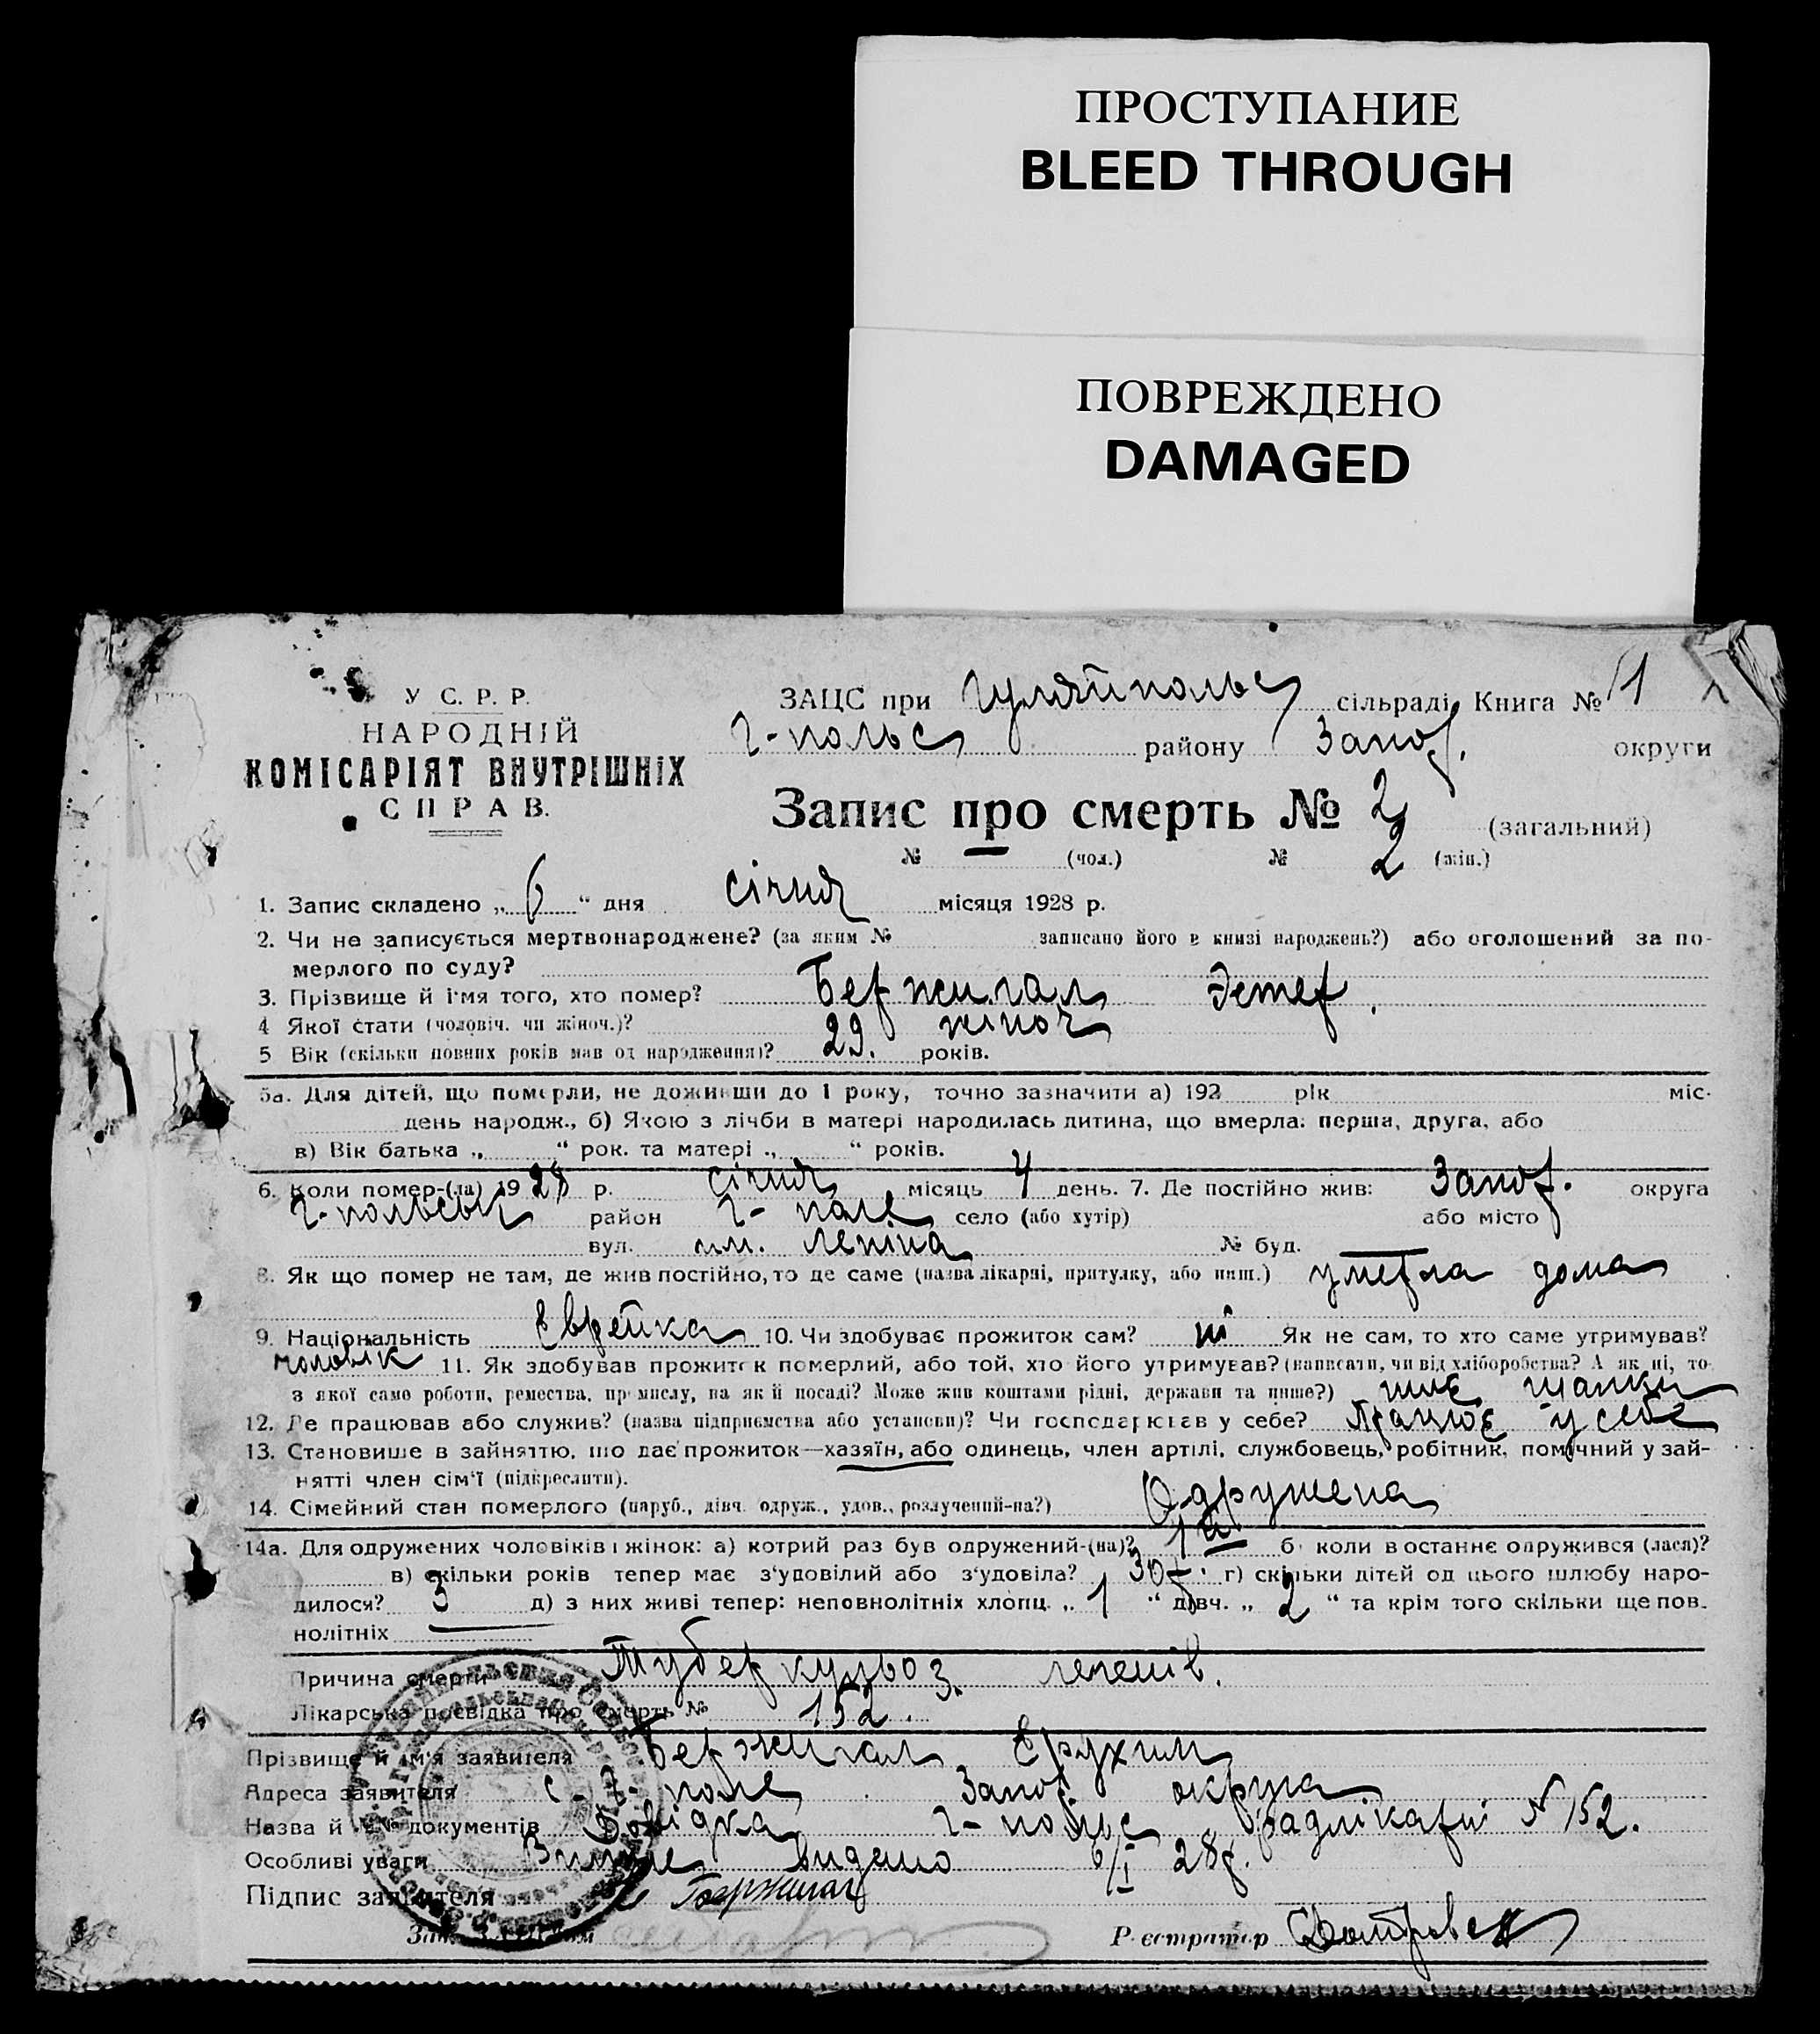 ПРОСТУПАНИЕ
BLEED THROUGH
ПОВРЕЖДЕНО
DAMAGED
У С. Р. Р.
НАРОДНІЙ
КОМІСАРІЯТ ВНУТРІШНІХ
СПРАВ.
ЗАЦС при Гуляйпольс сільраді Книга № 1
Г-польс району Запор. округи
Запис про смерть № 2 (загальний)
№ — (чол.) № 2 (жін.)
1. Запис складено „ 6 “ дня січня місяця 1928 р.
2. Чи не записується мертвонароджене? (за яким № записано його в книзі народжень?) або оголошений за по-
мерлого по суду?
3. Прізвище й ім'я того, хто помер? Бержигал Эстер.
4 Якої стати (чоловіч. чи жіноч.)? жіноч
5 Вік (скільки повних років мав од народження)? 29. років.
5а. Для дітей, що померли, не доживши до 1 року, точно зазначити а) 192 рік міс.
день народж., б) Якою з лічби в матері народилась дитина, що вмерла: перша, друга, або
в) Вік батька „ “ рок. та матері „ “ років.
6. Коли помер-(ла) 1928 р. січня місяць 4 день. 7. Де постійно жив: Запор. округа
Г-польськ район Г- поле село (або хутір) або місто
вул. им. Леніна № буд. —
8. Як що помер не там, де жив постійно, то де саме (назва лікарні, притулку, або инш.) умерла дома
9. Національність Еврейка 10. Чи здобуває прожиток сам? ні Як не сам, то хто саме утримував?
чоловік 11. Як здобував прожиток померлий, або той, хто його утримував? (написати, чи від хліборобства? А як ні, то
з якої саме роботи, ремества, промислу, на якій посаді? Може жив коштами рідні, держави та инше?) шиє шапки
12. Де працював або служив? (назва підприємства або установи)? Чи господарював у себе? Працює у себе
13. Становище в зайняттю, що дає прожиток—хазяїн, або одинець, член артілі, службовець, робітник, помічний у зай-
нятті член сім'ї (підкреслити).
14. Сімейний стан померлого (паруб., дівч. одруж., удов., розлучений-на?) Одружена
14а. Для одружених чоловіків і жінок: а) котрий раз був одружений-(на)? 1й б) коли востаннє одружився (лася)?
в) скільки років тепер має з'удовілий або з'удовіла? 30 р. г) скільки дітей од цього шлюбу наро-
дилося? 3 д) з них живі тепер: неповнолітніх хлопц. „ 1 “ дівч. „ 2 “ та крім того скільки ще пов-
нолітніх
Причина смерти Туберкульоз легенів.
Лікарська посвідка про смерть № 152.
Прізвище й ім'я заявителя Бержигал Ерухим
Адреса заявителя с. Г-поле Запор округа
Назва й № документів Довідка Г-польс райлікарні № 152.
Особливі уваги видано 6/I 28р.
Підпис заявителя Бержигал
Зав. ЗАЦС'ом
Реєстратор